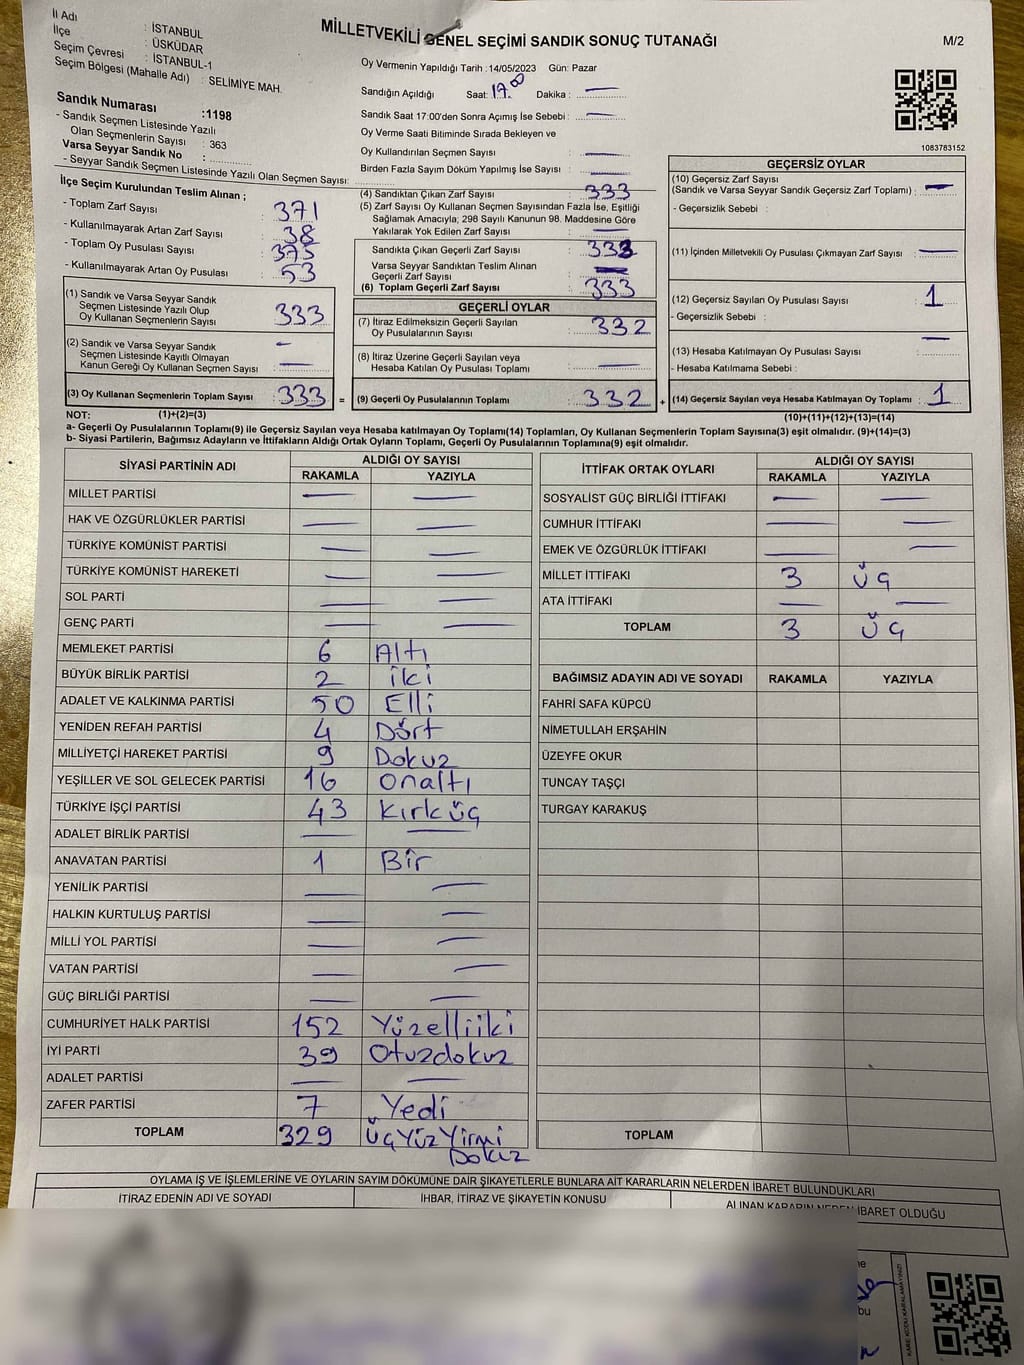 İl Adı : İSTANBUL
İlçe : ÜSKÜDAR
Seçim Çevresi : İSTANBUL-1
Seçim Bölgesi (Mahalle Adı) : SELİMİYE MAH.
MİLLETVEKİLİ GENEL SEÇİMİ SANDIK SONUÇ TUTANAĞI
M/2
Oy Vermenin Yapıldığı Tarih : 14/05/2023 Gün: Pazar
Sandığın Açıldığı Saat: 17.00 Dakika : —
Sandık Saat 17:00'den Sonra Açımış İse Sebebi : —
Oy Verme Saati Bitiminde Sırada Bekleyen ve
Oy Kullandırılan Seçmen Sayısı : —
Birden Fazla Sayım Döküm Yapılmış İse Sayısı : —
Sandık Numarası :1198
- Sandık Seçmen Listesinde Yazılı
Olan Seçmenlerin Sayısı : 363
Varsa Seyyar Sandık No :
- Seyyar Sandık Seçmen Listesinde Yazılı Olan Seçmen Sayısı:
1083783152
İlçe Seçim Kurulundan Teslim Alınan ;
- Toplam Zarf Sayısı : 371
- Kullanılmayarak Artan Zarf Sayısı : 38
- Toplam Oy Pusulası Sayısı : 375
- Kullanılmayarak Artan Oy Pusulası : 53
(1) Sandık ve Varsa Seyyar Sandık
Seçmen Listesinde Yazılı Olup
Oy Kullanan Seçmenlerin Sayısı : 333
(2) Sandık ve Varsa Seyyar Sandık
Seçmen Listesinde Kayıtlı Olmayan
Kanun Gereği Oy Kullanan Seçmen Sayısı : —
(3) Oy Kullanan Seçmenlerin Toplam Sayısı : 333 =
(4) Sandıktan Çıkan Zarf Sayısı : 333
(5) Zarf Sayısı Oy Kullanan Seçmen Sayısından Fazla İse, Eşitliği
Sağlamak Amacıyla; 298 Sayılı Kanunun 98. Maddesine Göre
Yakılarak Yok Edilen Zarf Sayısı : —
Sandıkta Çıkan Geçerli Zarf Sayısı : 333
Varsa Seyyar Sandıktan Teslim Alınan
Geçerli Zarf Sayısı : —
(6) Toplam Geçerli Zarf Sayısı : 333
GEÇERLİ OYLAR
(7) İtiraz Edilmeksizin Geçerli Sayılan
Oy Pusulalarının Sayısı : 332
(8) İtiraz Üzerine Geçerli Sayılan veya
Hesaba Katılan Oy Pusulası Toplamı : —
(9) Geçerli Oy Pusulalarının Toplamı : 332 +
GEÇERSİZ OYLAR
(10) Geçersiz Zarf Sayısı
(Sandık ve Varsa Seyyar Sandık Geçersiz Zarf Toplamı) : —
- Geçersizlik Sebebi :
(11) İçinden Milletvekili Oy Pusulası Çıkmayan Zarf Sayısı : —
(12) Geçersiz Sayılan Oy Pusulası Sayısı : 1
- Geçersizlik Sebebi :
(13) Hesaba Katılmayan Oy Pusulası Sayısı : —
- Hesaba Katılmama Sebebi :
(14) Geçersiz Sayılan veya Hesaba Katılmayan Oy Toplamı : 1
NOT: (1)+(2)=(3) (10)+(11)+(12)+(13)=(14)
a- Geçerli Oy Pusulalarının Toplamı(9) ile Geçersiz Sayılan veya Hesaba katılmayan Oy Toplamı(14) Toplamları, Oy Kullanan Seçmenlerin Toplam Sayısına(3) eşit olmalıdır. (9)+(14)=(3)
b- Siyasi Partilerin, Bağımsız Adayların ve İttifakların Aldığı Ortak Oyların Toplamı, Geçerli Oy Pusulalarının Toplamına(9) eşit olmalıdır.
SİYASİ PARTİNİN ADI ALDIĞI OY SAYISI
RAKAMLA YAZIYLA
MİLLET PARTİSİ — —
HAK VE ÖZGÜRLÜKLER PARTİSİ — —
TÜRKİYE KOMÜNİST PARTİSİ — —
TÜRKİYE KOMÜNİST HAREKETİ — —
SOL PARTİ — —
GENÇ PARTİ — —
MEMLEKET PARTİSİ 6 Altı
BÜYÜK BİRLİK PARTİSİ 2 iki
ADALET VE KALKINMA PARTİSİ 50 Elli
YENİDEN REFAH PARTİSİ 4 Dört
MİLLİYETÇİ HAREKET PARTİSİ 9 Dokuz
YEŞİLLER VE SOL GELECEK PARTİSİ 16 onaltı
TÜRKİYE İŞÇİ PARTİSİ 43 Kırküç
ADALET BİRLİK PARTİSİ — —
ANAVATAN PARTİSİ 1 Bir
YENİLİK PARTİSİ — —
HALKIN KURTULUŞ PARTİSİ — —
MİLLİ YOL PARTİSİ — —
VATAN PARTİSİ — —
GÜÇ BİRLİĞİ PARTİSİ — —
CUMHURİYET HALK PARTİSİ 152 Yüzelliiki
İYİ PARTİ 39 Otuzdokuz
ADALET PARTİSİ — —
ZAFER PARTİSİ 7 Yedi
TOPLAM 329 üçYüzYirmi
Dokuz
İTTİFAK ORTAK OYLARI ALDIĞI OY SAYISI
RAKAMLA YAZIYLA
SOSYALİST GÜÇ BİRLİĞİ İTTİFAKI — —
CUMHUR İTTİFAKI — —
EMEK VE ÖZGÜRLÜK İTTİFAKI — —
MİLLET İTTİFAKI 3 üç
ATA İTTİFAKI — —
TOPLAM 3 üç
BAĞIMSIZ ADAYIN ADI VE SOYADI RAKAMLA YAZIYLA
FAHRİ SAFA KÜPCÜ
NİMETULLAH ERŞAHİN
ÜZEYFE OKUR
TUNCAY TAŞÇI
TURGAY KARAKUŞ
TOPLAM
OYLAMA İŞ VE İŞLEMLERİNE VE OYLARIN SAYIM DÖKÜMÜNE DAİR ŞİKAYETLERLE BUNLARA AİT KARARLARIN NELERDEN İBARET BULUNDUKLARI
İTİRAZ EDENİN ADI VE SOYADI İHBAR, İTİRAZ VE ŞİKAYETİN KONUSU ALINAN KARARIN NEDEN İBARET OLDUĞU
bu